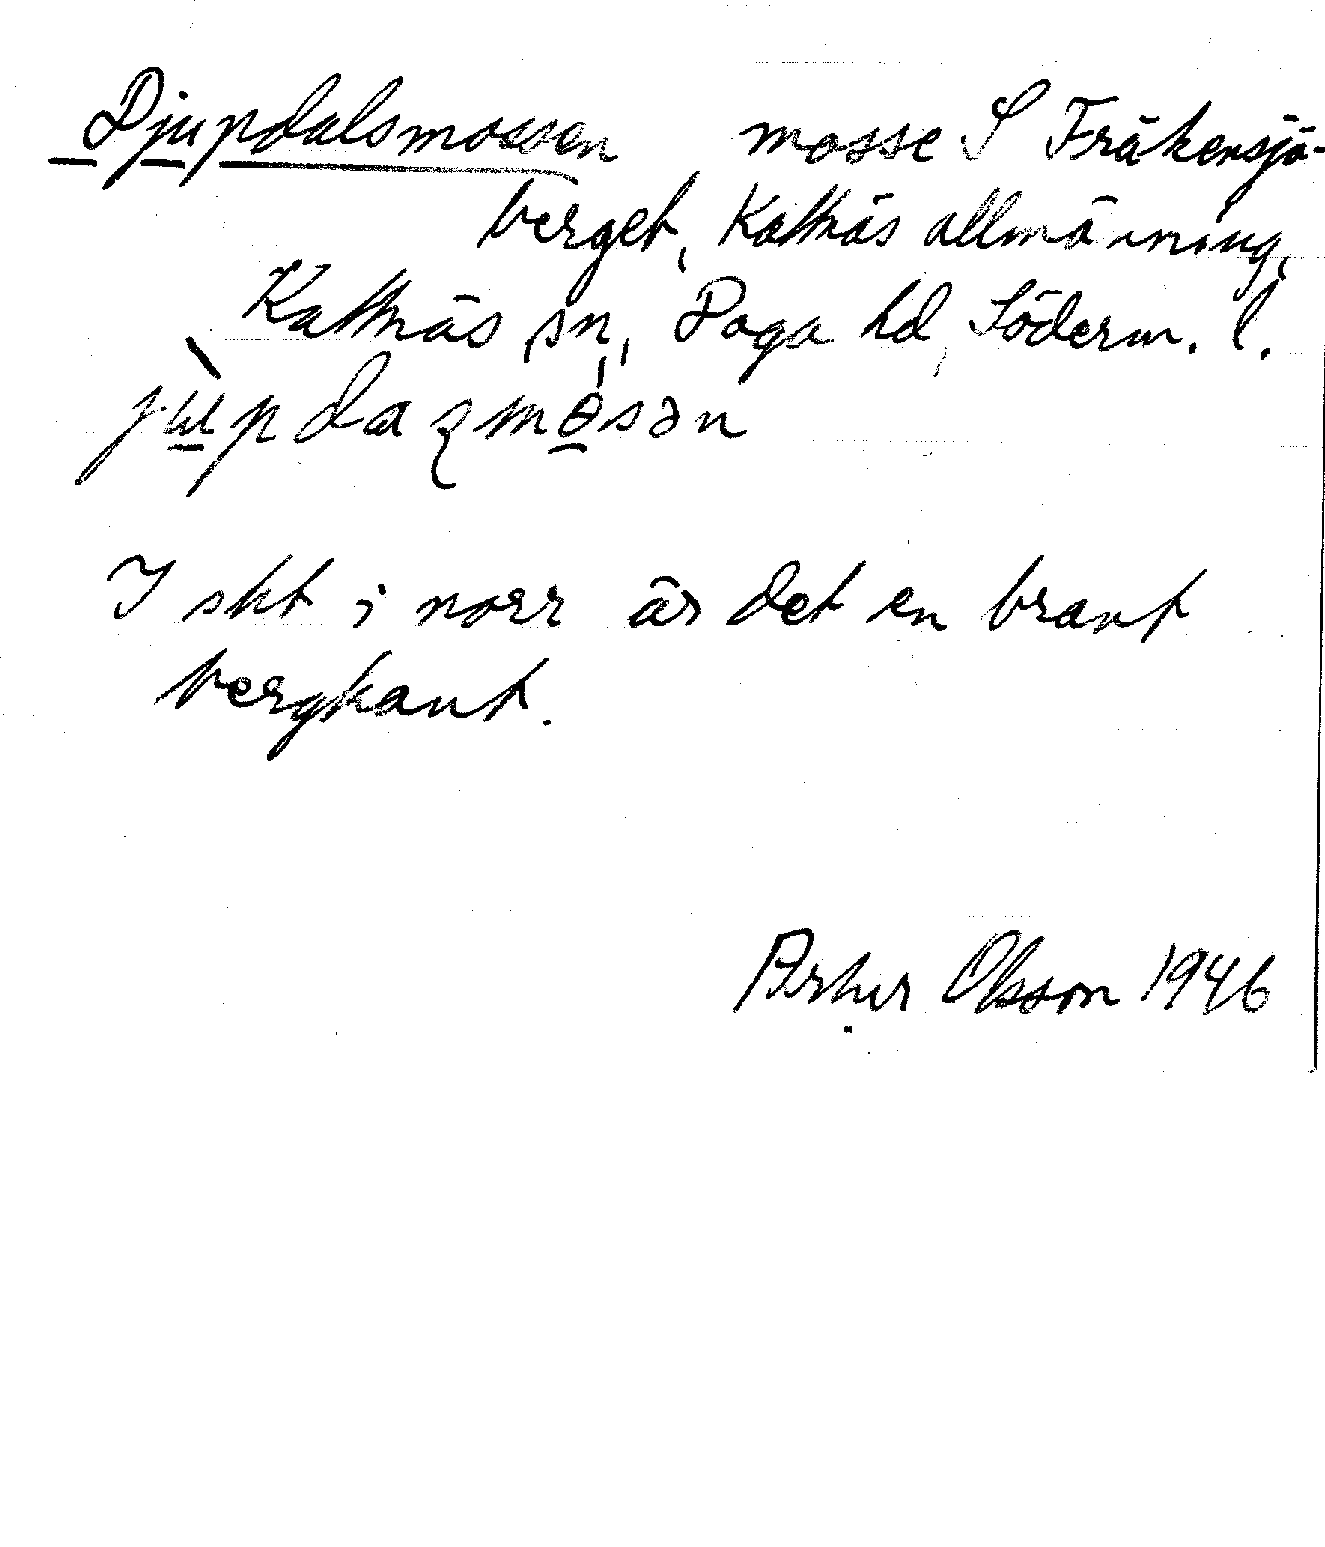 Djupdalsmossen mosse S Fräkensjö-
berget, Kattnäs allmänning,
Kattnäs sn, Daga hd, Söderm. l.
I skt i norr är det en brant
bergkant.
Arthur Olsson 1946